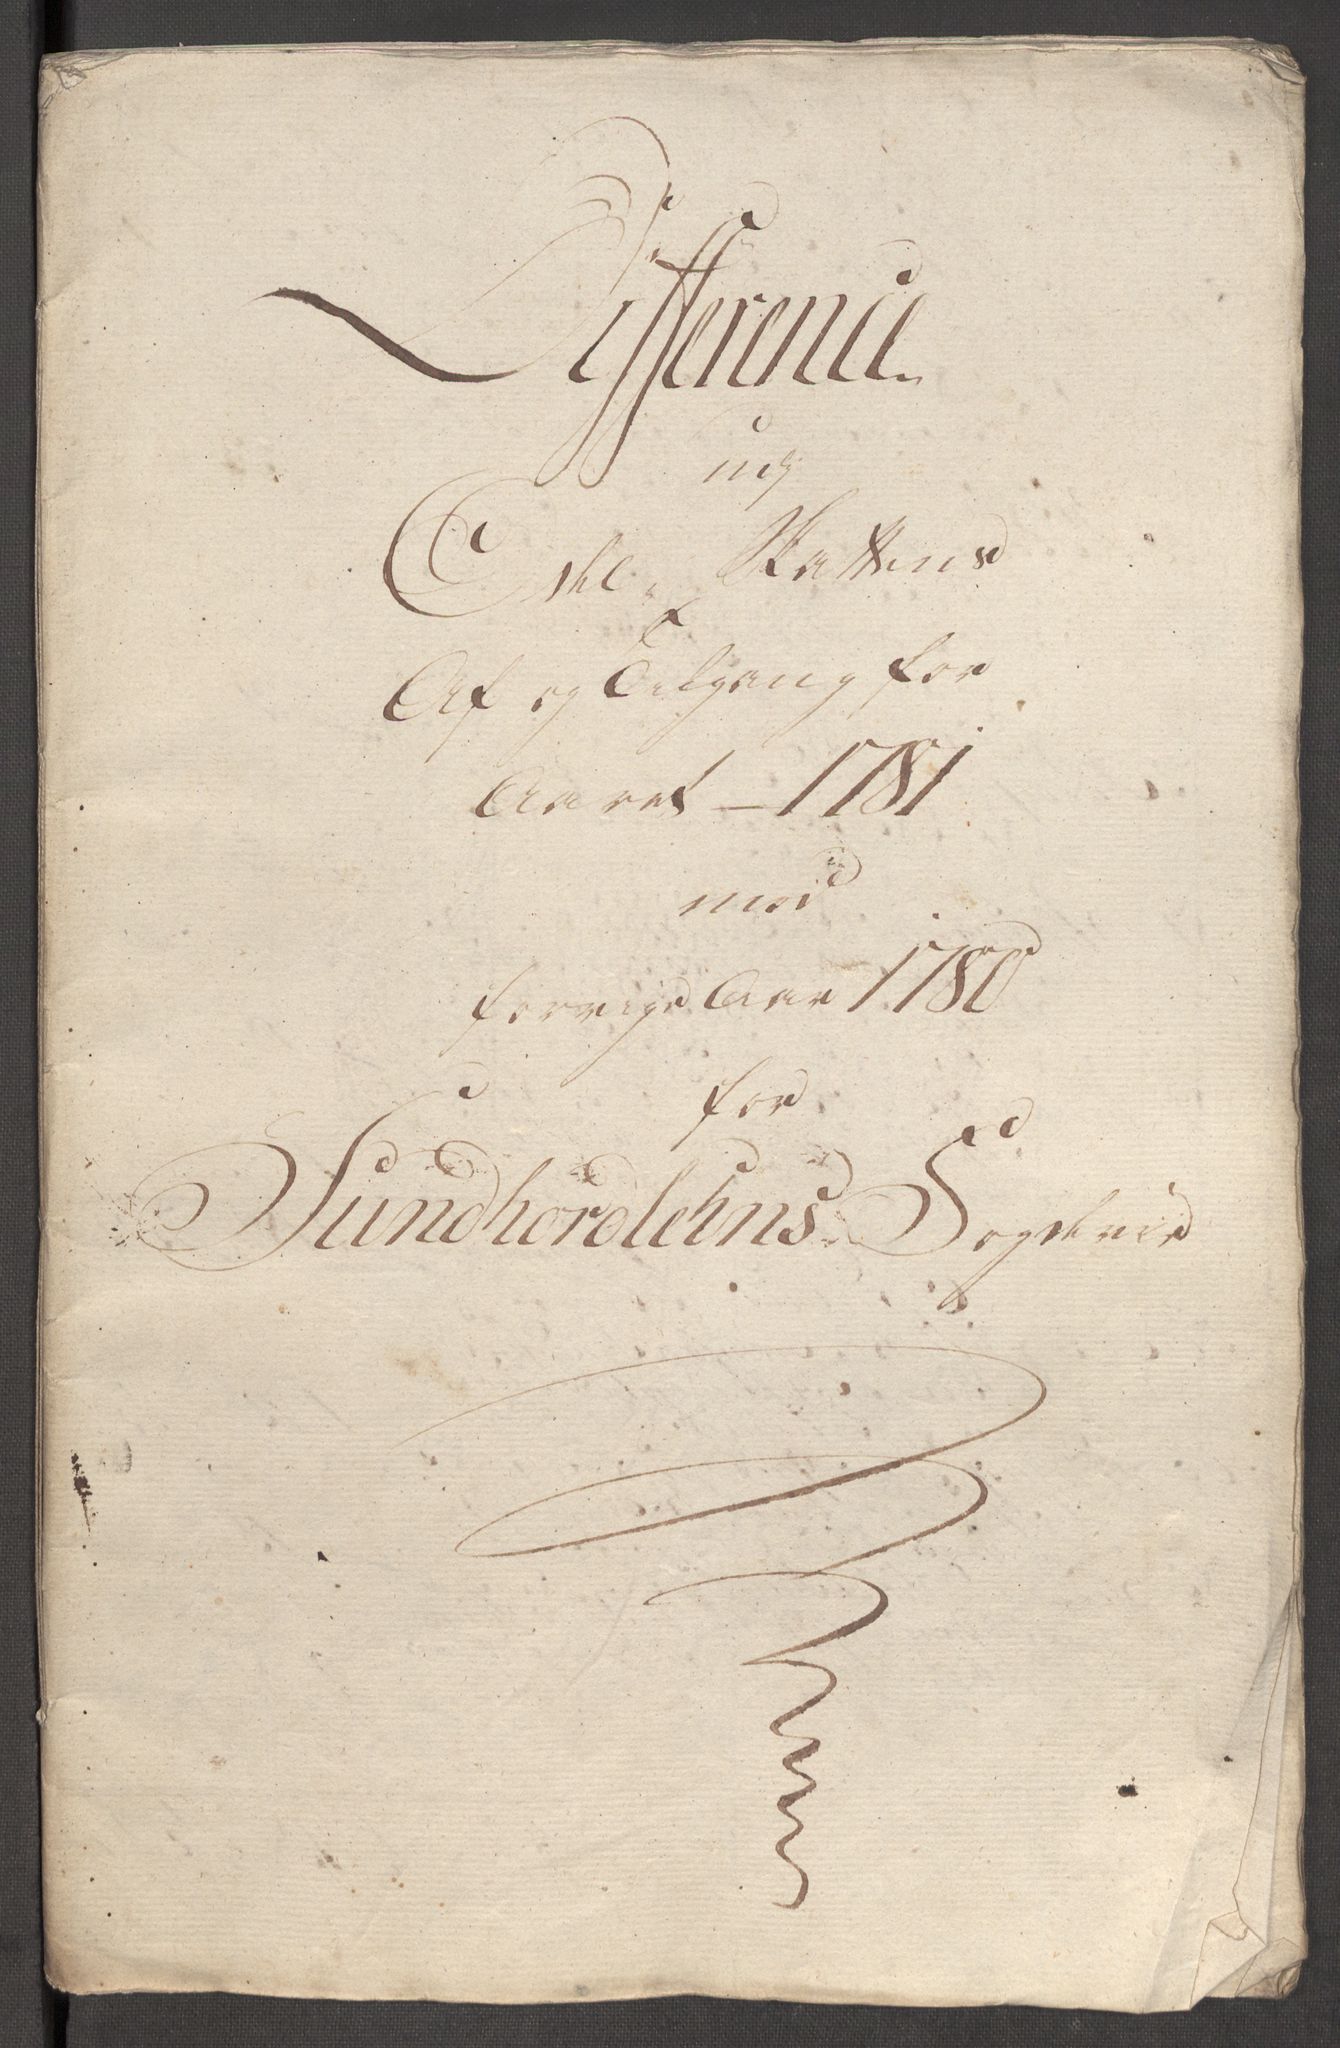 Difference
udj
Extr: Skattens
Af og Tilgang for
Aaret – 1781
mod
forrige Aar 1780
for
Sundhordlehns Fogderie